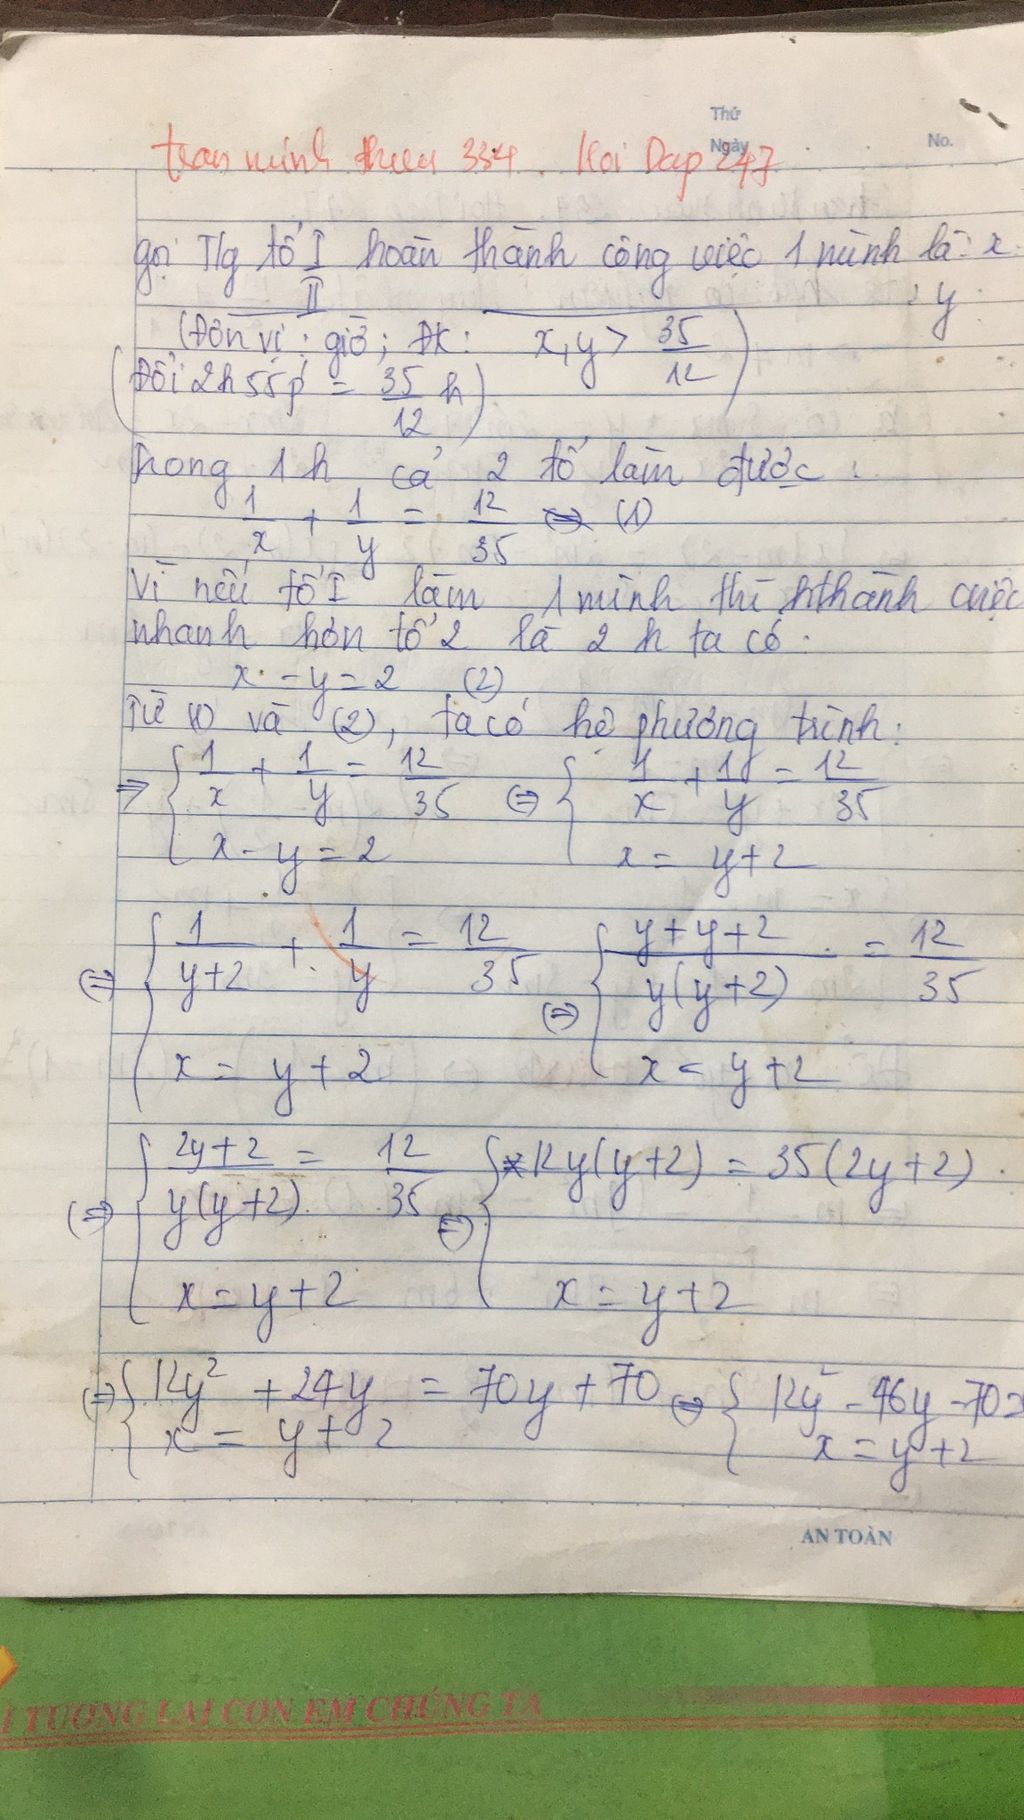 Thứ
Ngày No.
tran minh thuu 334. Hoi Dap 247
gọi T/g tổ I hoàn thành công việc 1 mình là: x
II , y
(Đơn vị: giờ; ĐK: x, y > 35/12)
(Đổi 2h55p' = 35/12 h)
Trong 1h cả 2 tổ làm được:
1/x + 1/y = 12/35 (1)
Vì nếu tổ I làm 1 mình thì hthành cviệc
nhanh hơn tổ 2 là 2h ta có:
x - y = 2 (2)
Từ (1) và (2), ta có hệ phương trình:
=> { 1/x + 1/y = 12/35 <=> { 1/x + 1/y = 12/35
x - y = 2 x = y + 2
<=> { 1/(y+2) + 1/y = 12/35 <=> { (y + y + 2)/(y(y+2)) = 12/35
x = y + 2 x = y + 2
<=> { (2y+2)/(y(y+2)) = 12/35 <=> { 12y(y+2) = 35(2y+2)
x = y + 2 x = y + 2
<=> { 12y² + 24y = 70y + 70 <=> { 12y² - 46y - 70 =
x = y + 2 x = y + 2
AN TOÀN
I TƯƠNG LAI CON EM CHÚNG TA